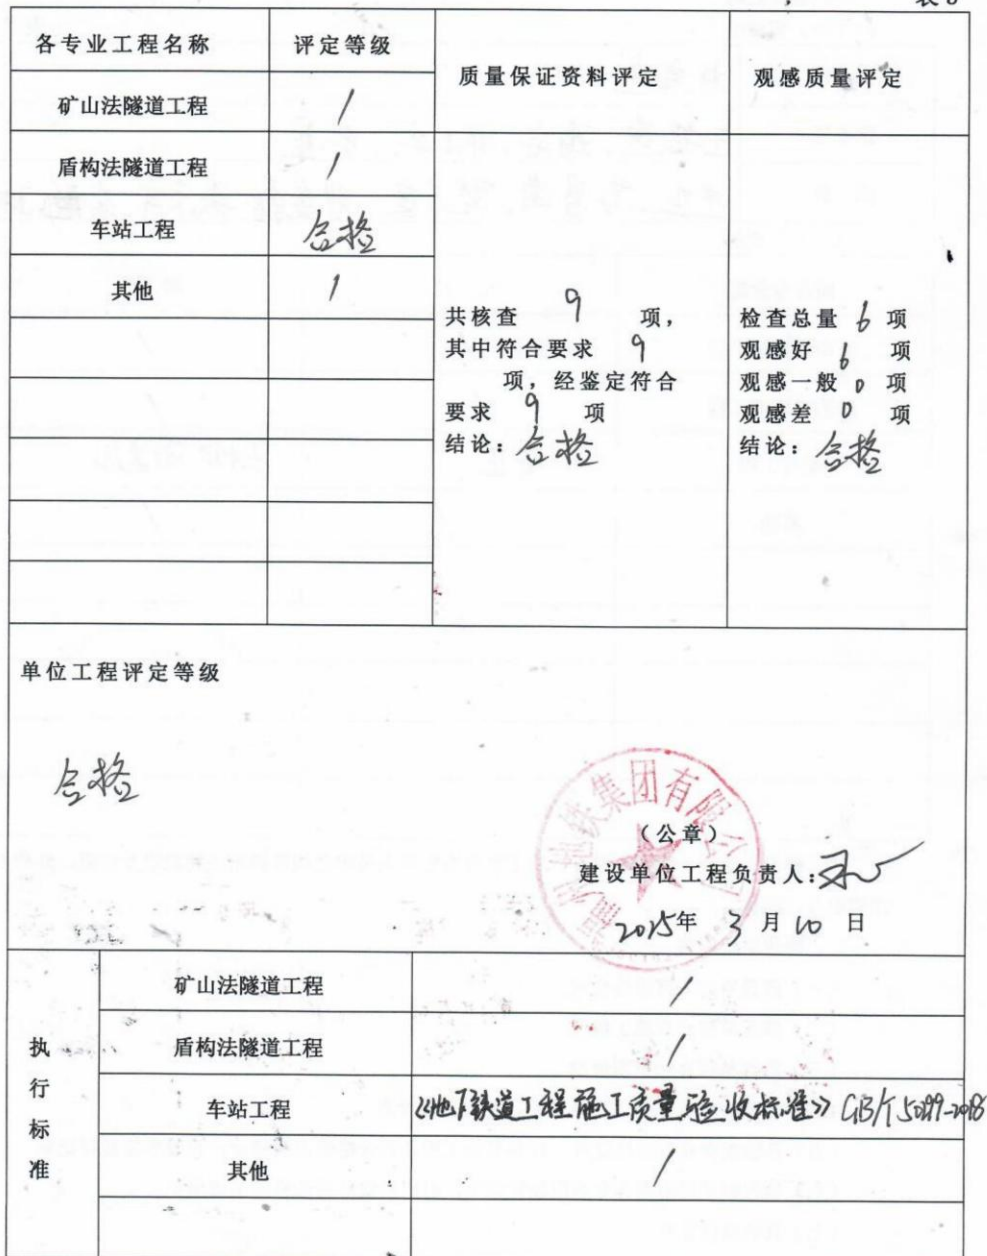 表6
各专业工程名称 评定等级 质量保证资料评定 观感质量评定
矿山法隧道工程 /
盾构法隧道工程 /
车站工程 合格
其他 /
共核查 9 项，
其中符合要求 9
项，经鉴定符合
要求 9 项
结论：合格
检查总量 6 项
观感好 6 项
观感一般 0 项
观感差 0 项
结论：合格
单位工程评定等级
合格
州地铁集团有限公司
（公章）
建设单位工程负责人：
2025年 3月10日
执行标准
矿山法隧道工程 /
盾构法隧道工程 /
车站工程 《地下铁道工程施工质量验收标准》GB/T 50299-2018
其他 /